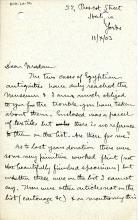 52, Prescot Street
Halifax
Yorks
11/7/03
Dear Madam
The two cases of Egyptian
antiquities have duly reached the
Museum & I am much obliged
to you for the trouble you have taken
about them. Enclosed was a parcel
of textiles but there is no reference
to them on the list. Are these for me?
As to last years donation there were
some very primitive worked flint (not
the beautifully finished specimens) but
whether these were on the list I cannot
say. There were other articles not on the
list (cartonage &c) & on mentioning this